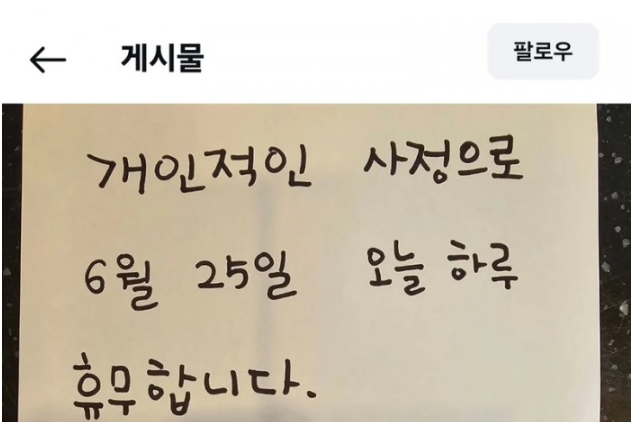 게시물
팔로우
개인적인 사정으로
6월 25일 오늘 하루
휴무합니다.